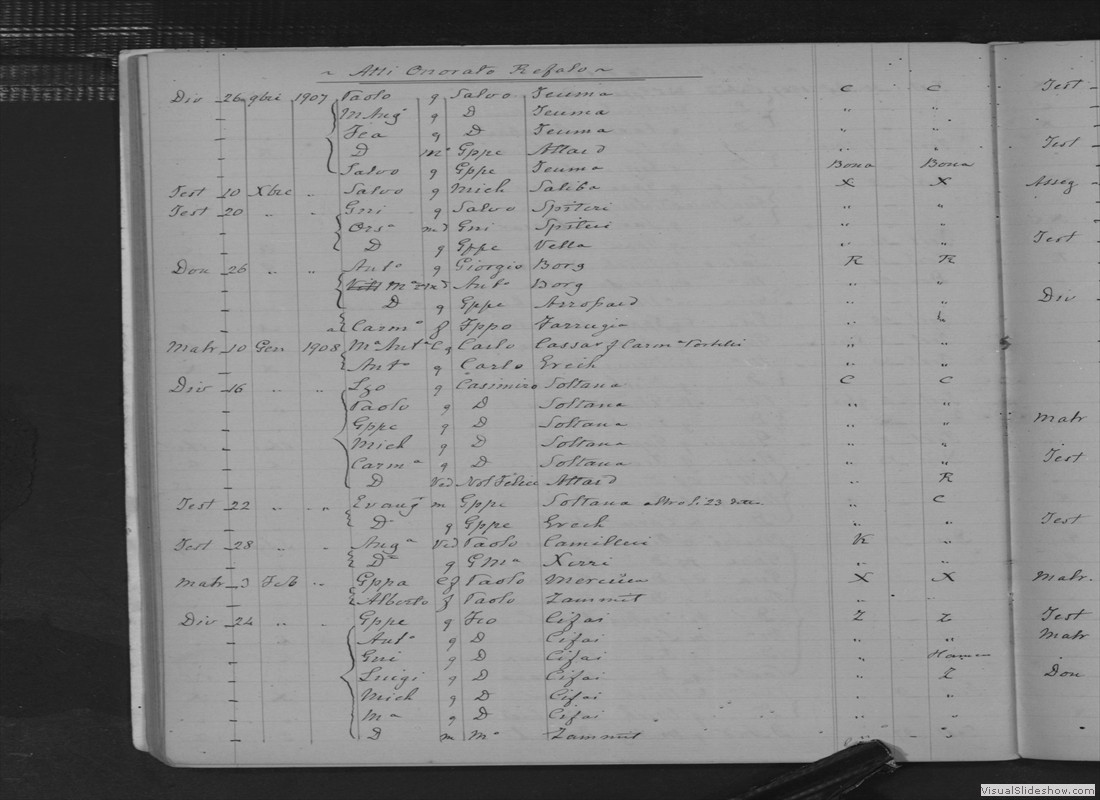 ~ Atti Onorato Refalo ~
Div 26 9bre 1907 Paolo q Salvo Teuma C C
Mang q D Teuma " "
Fca q D Teuma " "
D mº Gppe Attard " "
Salvo q Gppe Teuma Bona Bona
Test 10 Xbre Salvo q Mich Saliba X X
Test 20 " " Gni q Salvo Spiteri " "
Orsª Gni Spiteri " "
D q Gppe Vella " "
Don 26 " " Antº q Giorgio Borg R R
Antº Borg " "
D q Gppe Azzopard " "
Carmª f Fppo Farrugia "
Matr 10 Gen 1908 Mª Antª C q Carlo Cassar f Carmª " "
Antº q Carlo Grech " "
Div 16 " " Lzo q Casimiro Soltana C C
Paolo q D Soltana " "
Gppe q D Soltana " "
Mich q D Soltana " "
Carmª q D Soltana " "
D Ved Not Felice Attard " R
Test 22 " " Evang m Gppe Soltana " C
D q Gppe Grech " "
Test 28 " " Angª Ved Paolo Camilleri K "
Dª q GMª Xerri " "
Matr 3 Feb " Gppa C f Paolo Mercieca X X
Alberto f Paolo Zammit " "
Div 24 " " Gppe q Fco Cefai Z Z
Antº q D Cefai " "
Gni q D Cefai "
Luigi q D Cefai " Z
Mich q D Cefai " "
Mª q D Cefai " "
D m Mº Zammit " "
Test
Test
Asseg
Test
Div
Matr
Test
Test
Matr.
Test
Matr
Don
VisualSlideshow.com